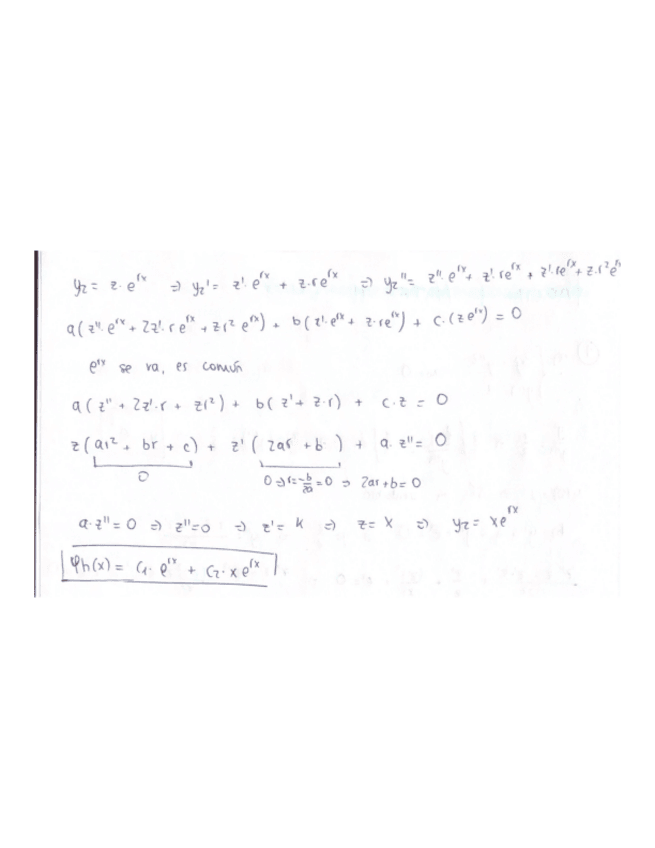 y₂ = z·e^rx ⇒ y₂' = z'·e^rx + z·re^rx ⇒ y₂'' = z''·e^rx + z'·re^rx + z'·re^rx + z·r²e^rx
a(z''·e^rx + 2z'·r e^rx + zr² e^rx) + b(z'·e^rx + z·re^rx) + c·(ze^rx) = 0
e^rx se va, es común
a(z'' + 2z'·r + zr²) + b(z' + z·r) + c·z = 0
z(ar² + br + c) + z'(2ar + b) + a·z'' = 0
0 0 ⇒ r = -b/2a = 0 ⇒ 2ar + b = 0
a·z'' = 0 ⇒ z'' = 0 ⇒ z' = K ⇒ z = x ⇒ y₂ = xe^rx
φh(x) = C₁·e^rx + C₂·xe^rx